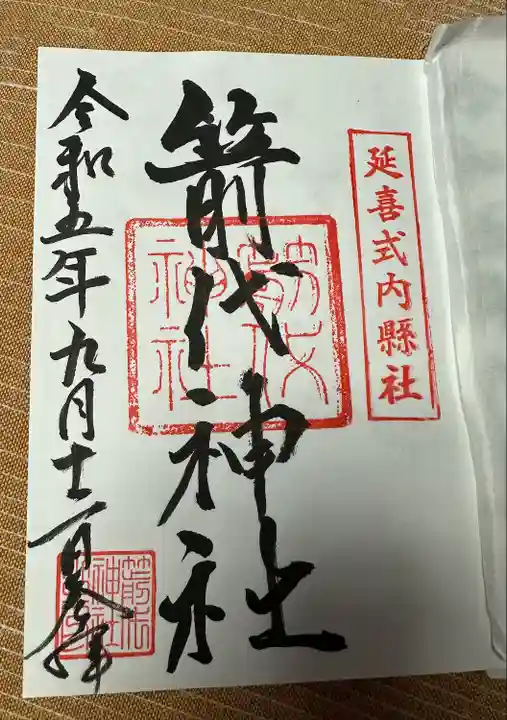 延喜式内縣社
箭代神社
箭代
神社
令和五年九月十二日参拝
箭代
神社